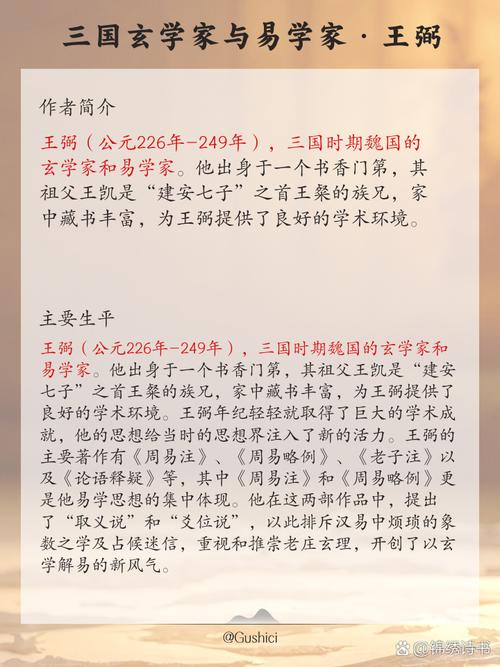 三国玄学家与易学家·王弼
作者简介
王弼（公元226年-249年），三国时期魏国的
玄学家和易学家。他出身于一个书香门第，其
祖父王凯是“建安七子”之首王粲的族兄，家
中藏书丰富，为王弼提供了良好的学术环境。
主要生平
王弼（公元226年-249年），三国时期魏国的玄学家和
易学家。他出身于一个书香门第，其祖父王凯是“建安
七子”之首王粲的族兄，家中藏书丰富，为王弼提供了
良好的学术环境。王弼年纪轻轻就取得了巨大的学术成
就，他的思想给当时的思想界注入了新的活力。王弼的
主要著作有《周易注》、《周易略例》、《老子注》以
及《论语释疑》等，其中《周易注》和《周易略例》更
是他易学思想的集中体现。他在这两部作品中，提出
了“取义说”和“爻位说”，以此排斥汉易中烦琐的象
数之学及占候迷信，重视和推崇老庄玄理，开创了以玄
学解易的新风气。
@Gushici
百家号/锦绣诗书